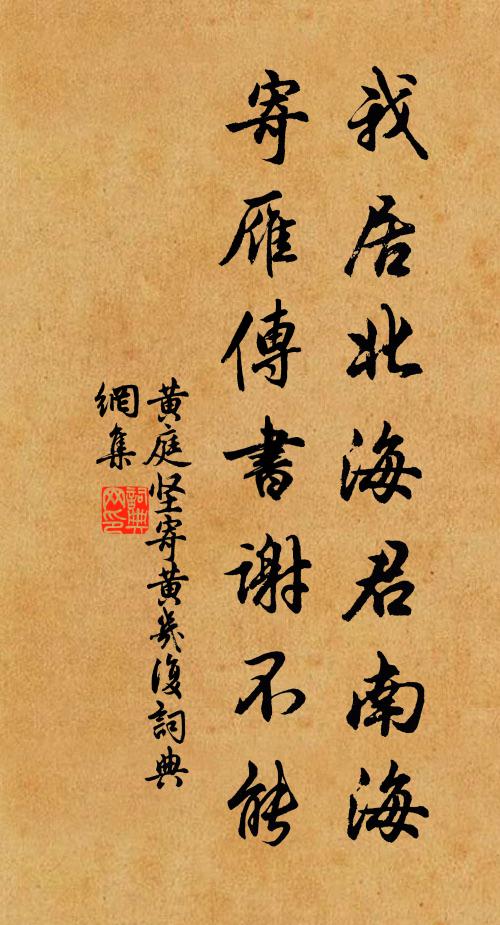 我居北海君南海
寄雁傳書謝不能
黄庭坚寄黄幾復詞典
網集
詞典网印